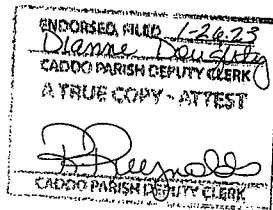 ENDORSED, FILED 1-26-23
Dianne Doughty
CADDO PARISH DEPUTY CLERK
A TRUE COPY - ATTEST
R Reynolds
CADDO PARISH DEPUTY CLERK